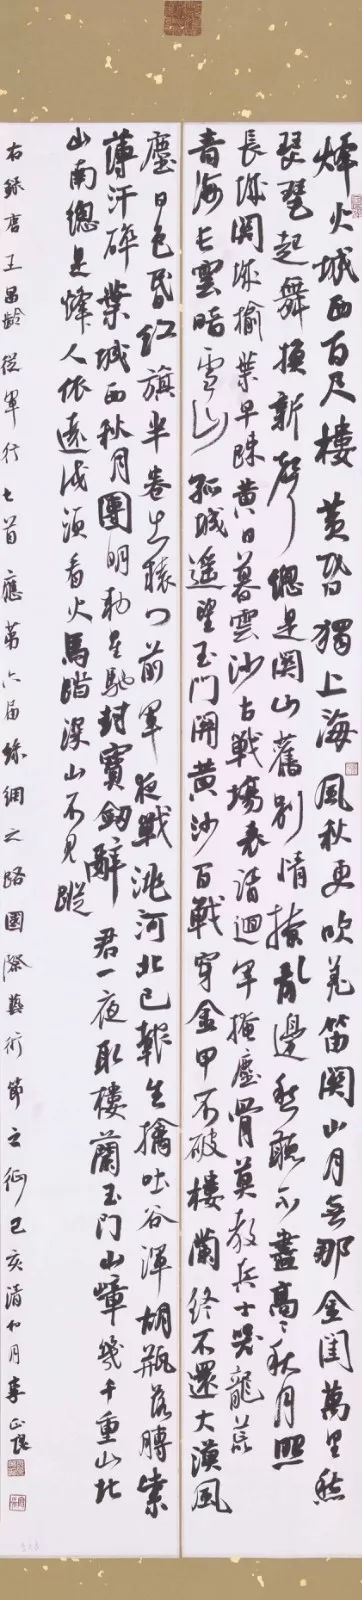 烽火城西百尺樓黃昏獨上海風秋更吹羌笛関山月無那金閨萬里愁
琵琶起舞換新聲總是関山舊別情撩亂邊愁聽不盡高〻秋月照
長城関城榆葉早踈黃日暮雲沙古戰場表請迴軍掩塵骨莫教兵士哭龍荒
青海長雲暗雪山孤城遙望玉門関黃沙百戰穿金甲不破樓蘭終不還大漠風
塵日色昏紅旗半卷出轅門前軍夜戰洮河北已報生擒吐谷渾胡瓶落膊紫
薄汗碎葉城西秋月團明勅星馳封寶劒辭君一夜取樓蘭玉門山嶂幾千重山北
山南總是烽人依遠戍須看火馬踏深山不見蹤
右錄唐王昌齡從軍行七首應第六屆絲綢之路國際藝術節之征己亥清和月李